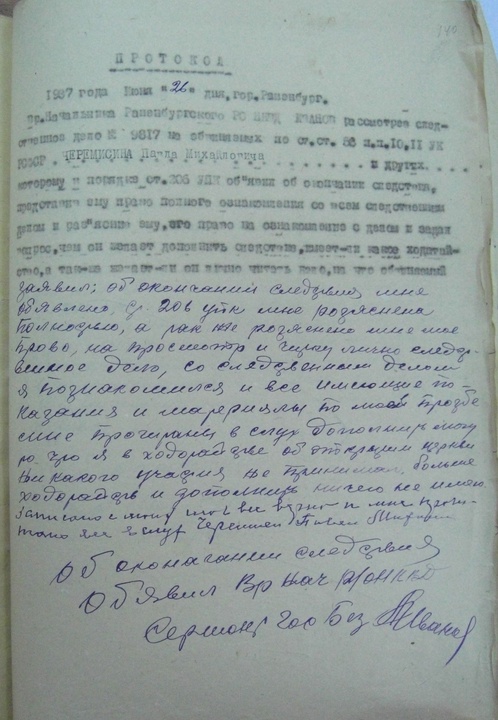 340
ПРОТОКОЛ
1937 года Июня "26" дня, гор. Раненбург.
Вр. Начальника Раненбургского РО НКВД ИВАНОВ рассмотрев след-
ственное дело № 9817 на обвиняемых по ст.ст. 58 п.п.10,11 УК
РСФСР ЧЕРЕМИСИНА Павла Михайловича и других
которому в порядке ст. 206 УПК об"явил об окончании следствия,
предоставив ему право полного ознакомления со всем следственным
делом и раз"яснив ему, его право на ознакомление с делом и задав
вопрос, чем он желает дополнить следствие, имеет-ли какое ходатай-
ство, а так-же желает-ли он лично читать дело, на что обвиняемый
заявил: об окончании следствия мне
объявлено, ст. 206 упк мне розяснена
полностью, а так же розяснено мне мое
право, на просмотр и читку лично следст-
венное дело, со следственным делом
я познакомился и все имеющие по-
казания и матерялы по моей прозбе
мне прочитаны в слух дополнить могу
то, что я в ходотайстве об открытии церкви
никакого участия не принимал, больше
ходотайств и дополнить ничего не имею.
Записано с моих слов верно и мне прочи-
тано в слух Черемисин Павел Михайл
Об окончании следствия
Объявил Вр Нач РО НКВД
Сержант Гос Без Иванов